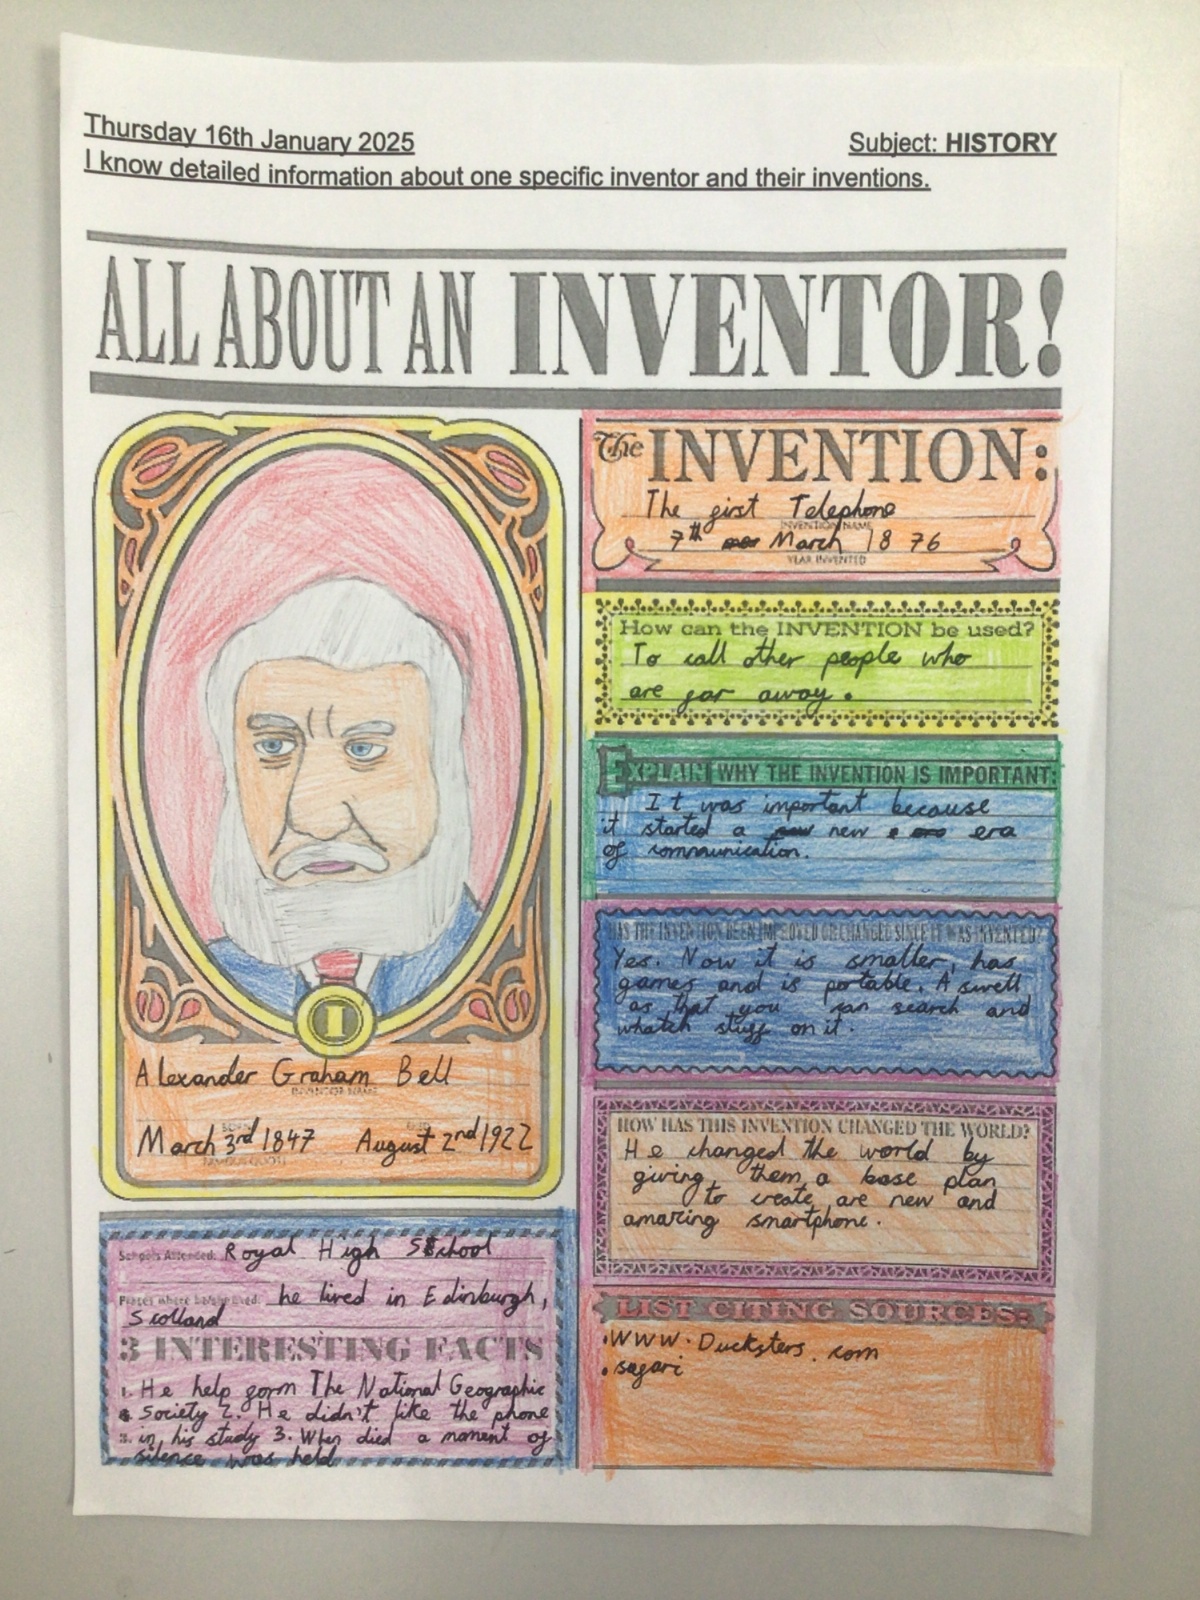 Thursday 16th January 2025
Subject: HISTORY
I know detailed information about one specific inventor and their inventions.
ALL ABOUT AN INVENTOR!
I
Alexander Graham Bell
INVENTOR NAME
March 3rd 1847 August 2nd 1922
Schools Attended: Royal High School
Places where he/she lived: he lived in Edinburgh,
Scotland
3 INTERESTING FACTS
1. He help form The National Geographic
Society 2. He didn't like the phone
3. in his study 3. When died a moment of
silence was held
The INVENTION:
The first Telephone
INVENTION NAME
7th March 1876
YEAR INVENTED
How can the INVENTION be used?
To call other people who
are far away.
EXPLAIN WHY THE INVENTION IS IMPORTANT:
It was important because
it started a new era
of communication.
HAS THE INVENTION BEEN IMPROVED OR CHANGED SINCE IT WAS INVENTED?
Yes. Now it is smaller, has
games and is portable. A swell
as that you can search and
whatch stuff on it.
HOW HAS THIS INVENTION CHANGED THE WORLD?
He changed the world by
giving them a base plan
to create are new and
amazing smartphone.
LIST CITING SOURCES:
• WWW.Ducksters.com
• safari